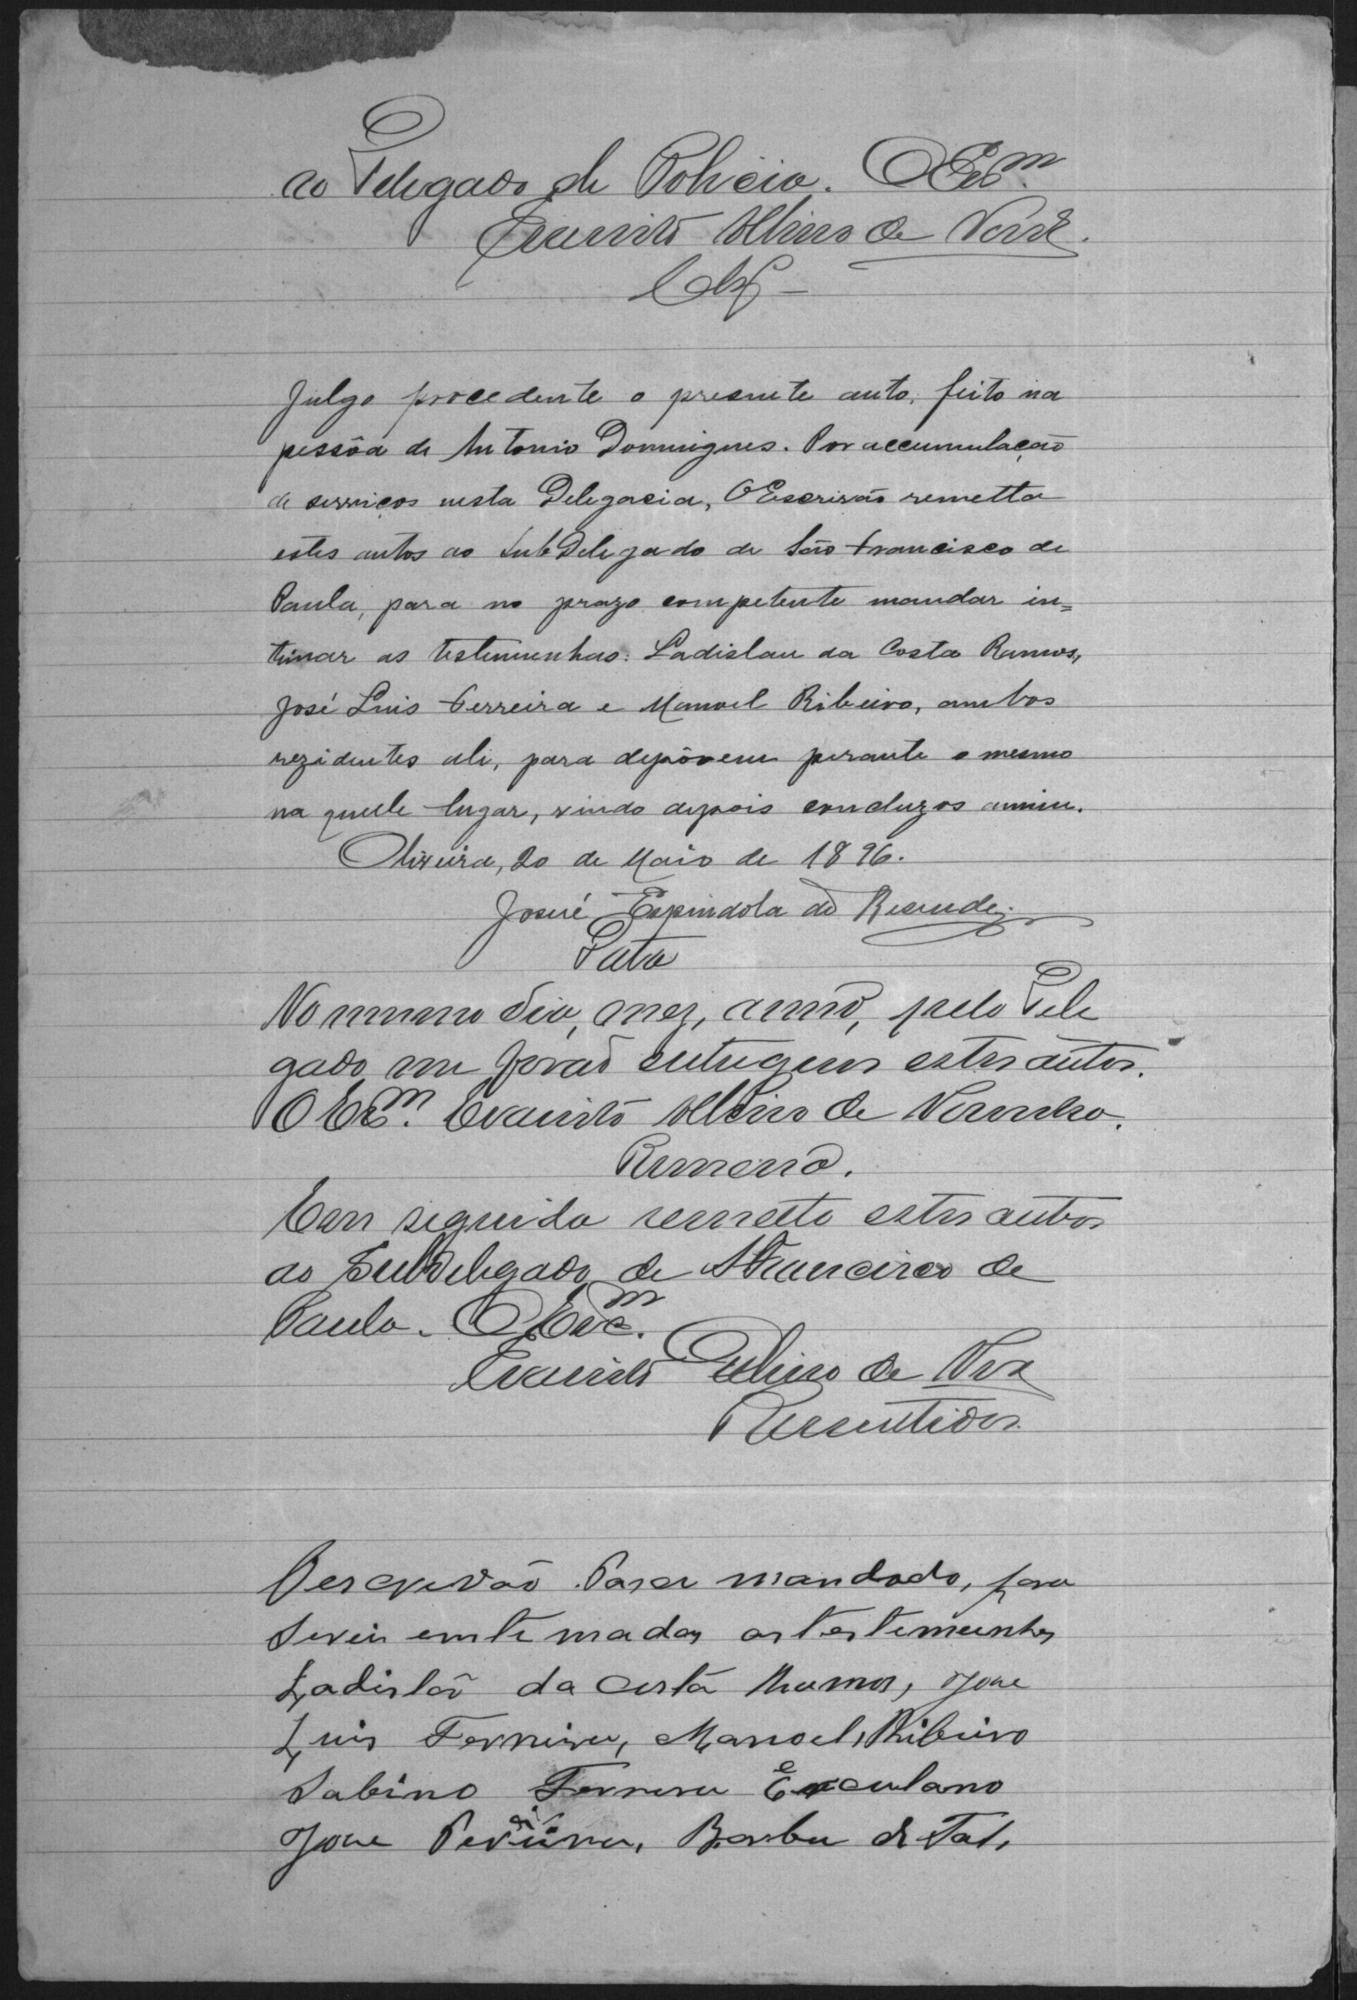 ao Delegado de Policia. O Escm
Evaristo Albino de
Clz
Julgo procedente o presente auto, feito na
pessôa de Antonio Domingues. Por accumulação
de serviços nesta Delegacia, O Escrivão remetta
estes autos ao SubDelegado de São Francisco de
Paula, para no prazo competente mandar in=
timar as testemunhas: Ladislau da Costa Ramos,
José Luis Ferreira e Manoel Ribeiro, ambos
rezidentes ali, para depôrem perante o mesmo
na quele lugar, vindo depois concluzos amim.
Oliveira, 20 de Maio de 1896.
Josué Espindola de Resende
Data
No mesmo dia, mez, anno, pelo Dele
gado me forão entregues estes autos.
O Escm. Evaristo Albino de
Remessa.
Em seguida remetto estes autos
ao Subdelegado de S Francisco de
Paula. O Escm.
Evaristo Albino de
Remettidos.
Oescrevão Paser mandado, para
serem emtemadas as testemunhas
Ladislão da Costa Ramos, Jose
Luis Ferreira, Manoel Ribeiro
Sabino Ferreira Erculano
Jose Pereira, Barbu de Tal,